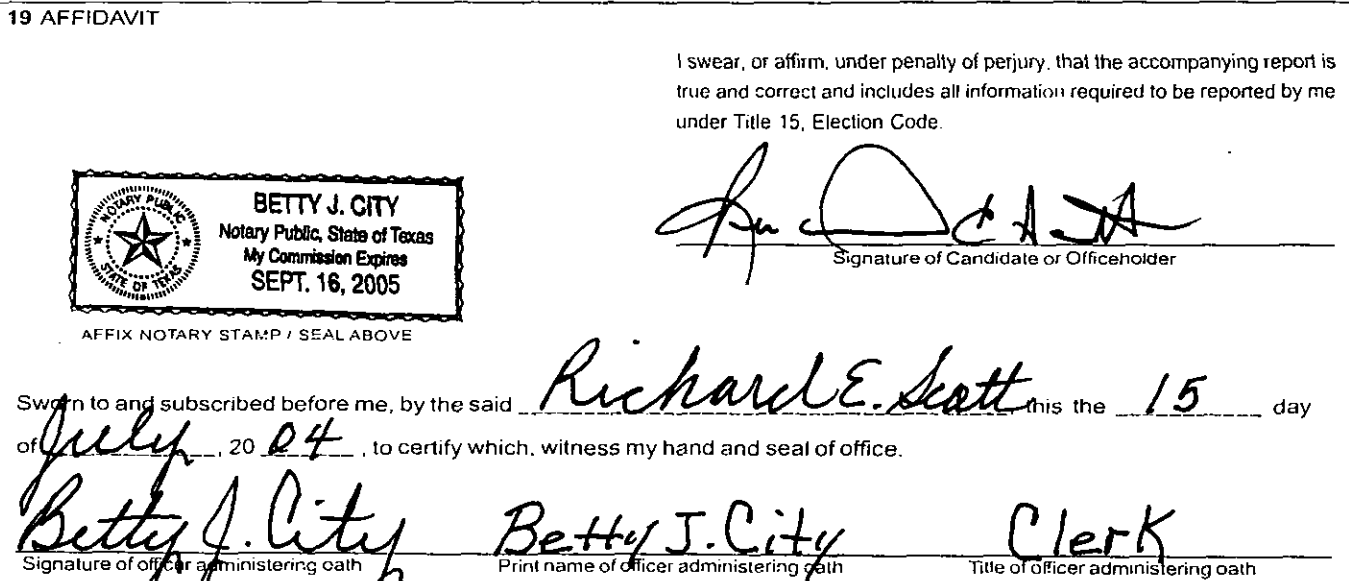 19 AFFIDAVIT
I swear, or affirm, under penalty of perjury, that the accompanying report is
true and correct and includes all information required to be reported by me
under Title 15, Election Code.
NOTARY PUBLIC
STATE OF TEXAS
BETTY J. CITY
Notary Public, State of Texas
My Commission Expires
SEPT. 16, 2005
Signature of Candidate or Officeholder
AFFIX NOTARY STAMP / SEAL ABOVE
Sworn to and subscribed before me, by the said Richard E. Scott this the 15 day
of July, 20 04, to certify which, witness my hand and seal of office.
Betty J. City Betty J. City Clerk
Signature of officer administering oath Print name of officer administering oath Title of officer administering oath